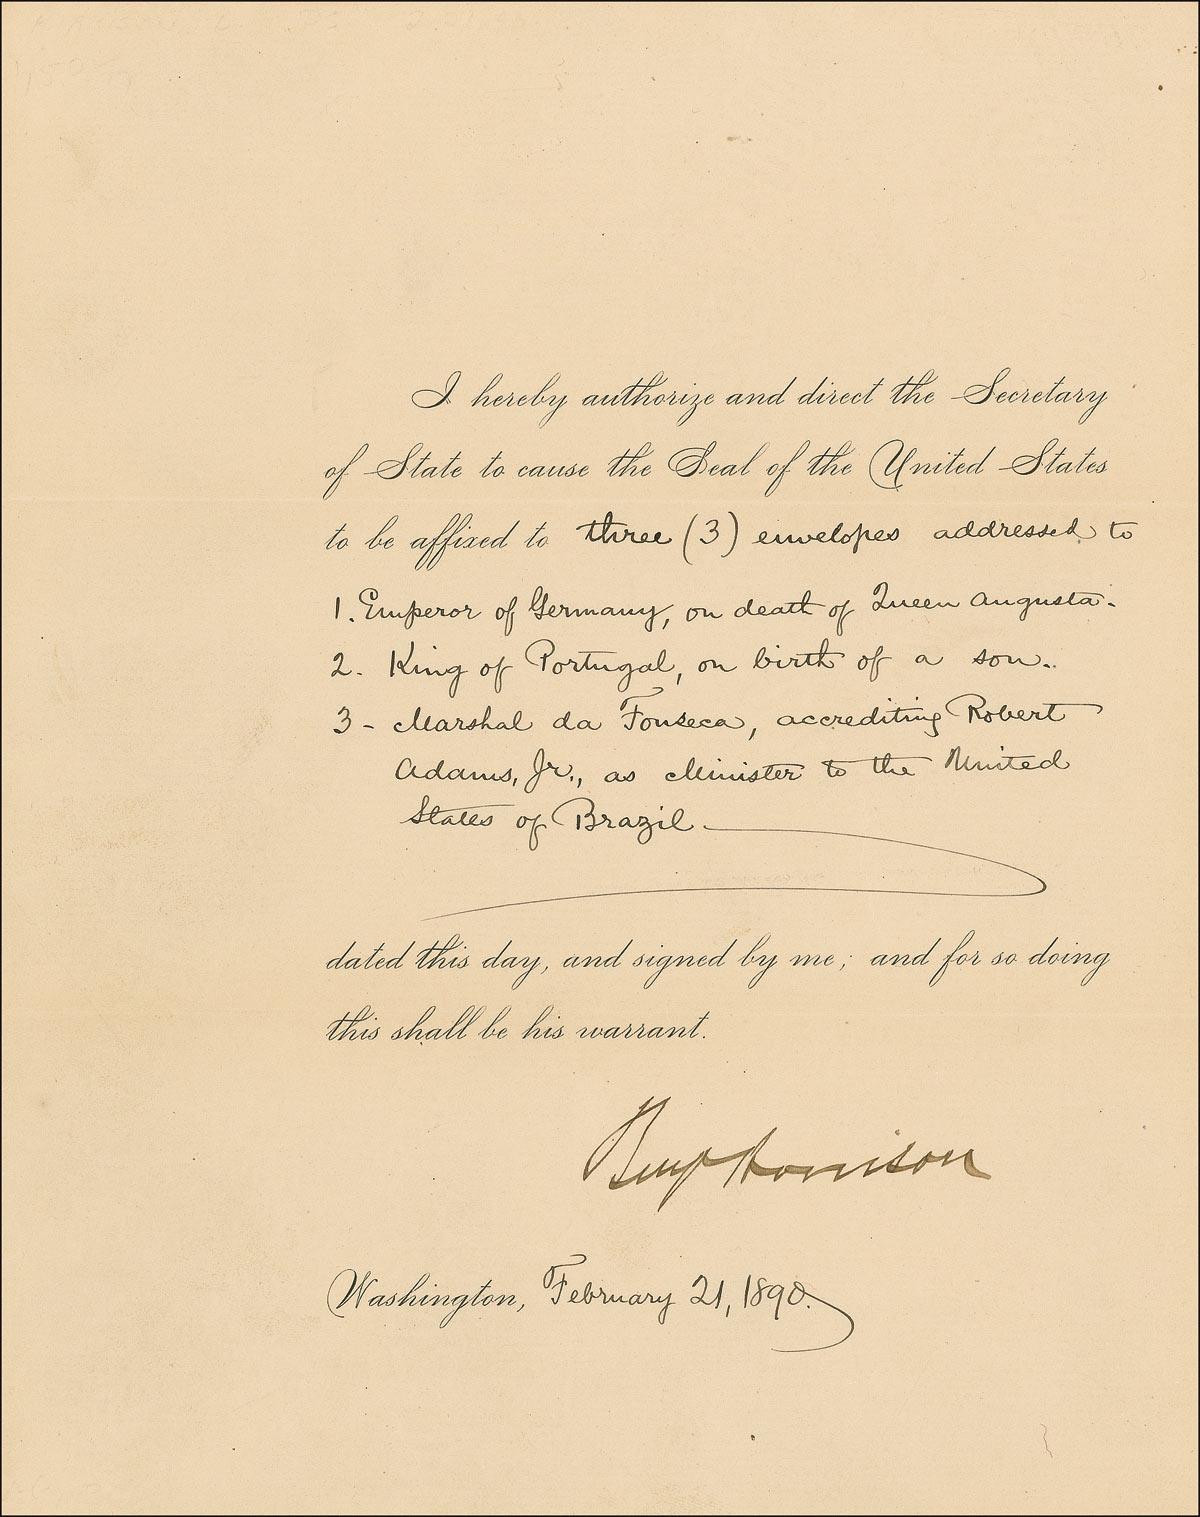 I hereby authorize and direct the Secretary
of State to cause the Seal of the United States
to be affixed to three (3) envelopes addressed to
1. Emperor of Germany, on death of Queen Augusta.
2. King of Portugal, on birth of a son.
3 - Marshal da Fonseca, accrediting Robert
Adams, Jr., as Minister to the United
States of Brazil.
dated this day, and signed by me; and for so doing
this shall be his warrant.
Benj Harrison
Washington, February 21, 1890.